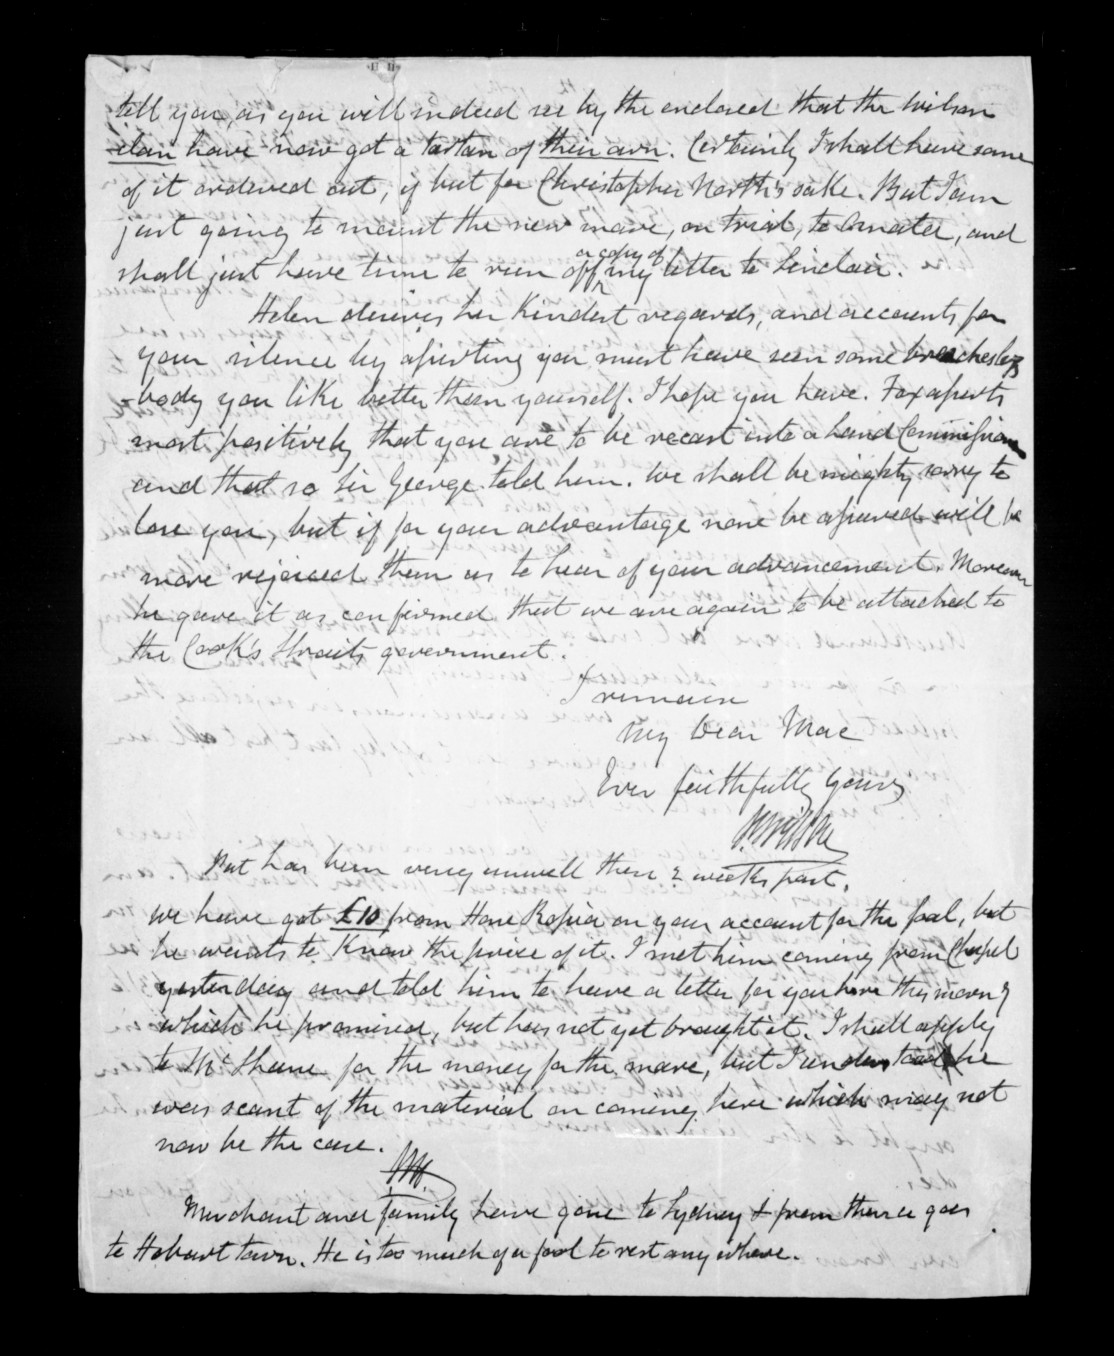 tell you, as you will indeed see by the enclosed that the Wilson
clan have now got a tartan of their own. Certainly I shall have some
of it ordered out, if but for Christopher North's sake. But I am
just going to mount the new mare, on trial, to Omata, and
shall just have time to run off a copy of my letter to Sinclair.
Helen desires her kindest regards, and accounts for
your silence by asserting you must have seen some breachesless
-body you like better than yourself. I hope you have. Fox asserts
most positively that you are to be recast into a Land Commissioner
and that so Sir George told him. We shall be mighty sorry to
lose you, but if for your advantage none be assured will be
more rejoiced than us to hear of your advancement. Moreover
he gave it as confirmed that we are again to be attached to
the Cook's Straits government.
I remain
My Dear Mac
Ever faithfully Yours
P. Wilson
Pat has been very unwell these 2 weeks past.
We have got £10 from Hone Ropiha on your account for the foal, but
he wants to know the price of it. I met him coming from Chapel
yesterday and told him to have a letter for you here this morng
which he promised, but has not yet brought it. I shall apply
to Mc Shane for the money for the mare, but I understand he
was scant of the material on coming here which may not
now be the case.
P.W.
Merchant and family have gone to Sydney & from thence goes
to Hobart town. He is too much of a fool to rest any where.